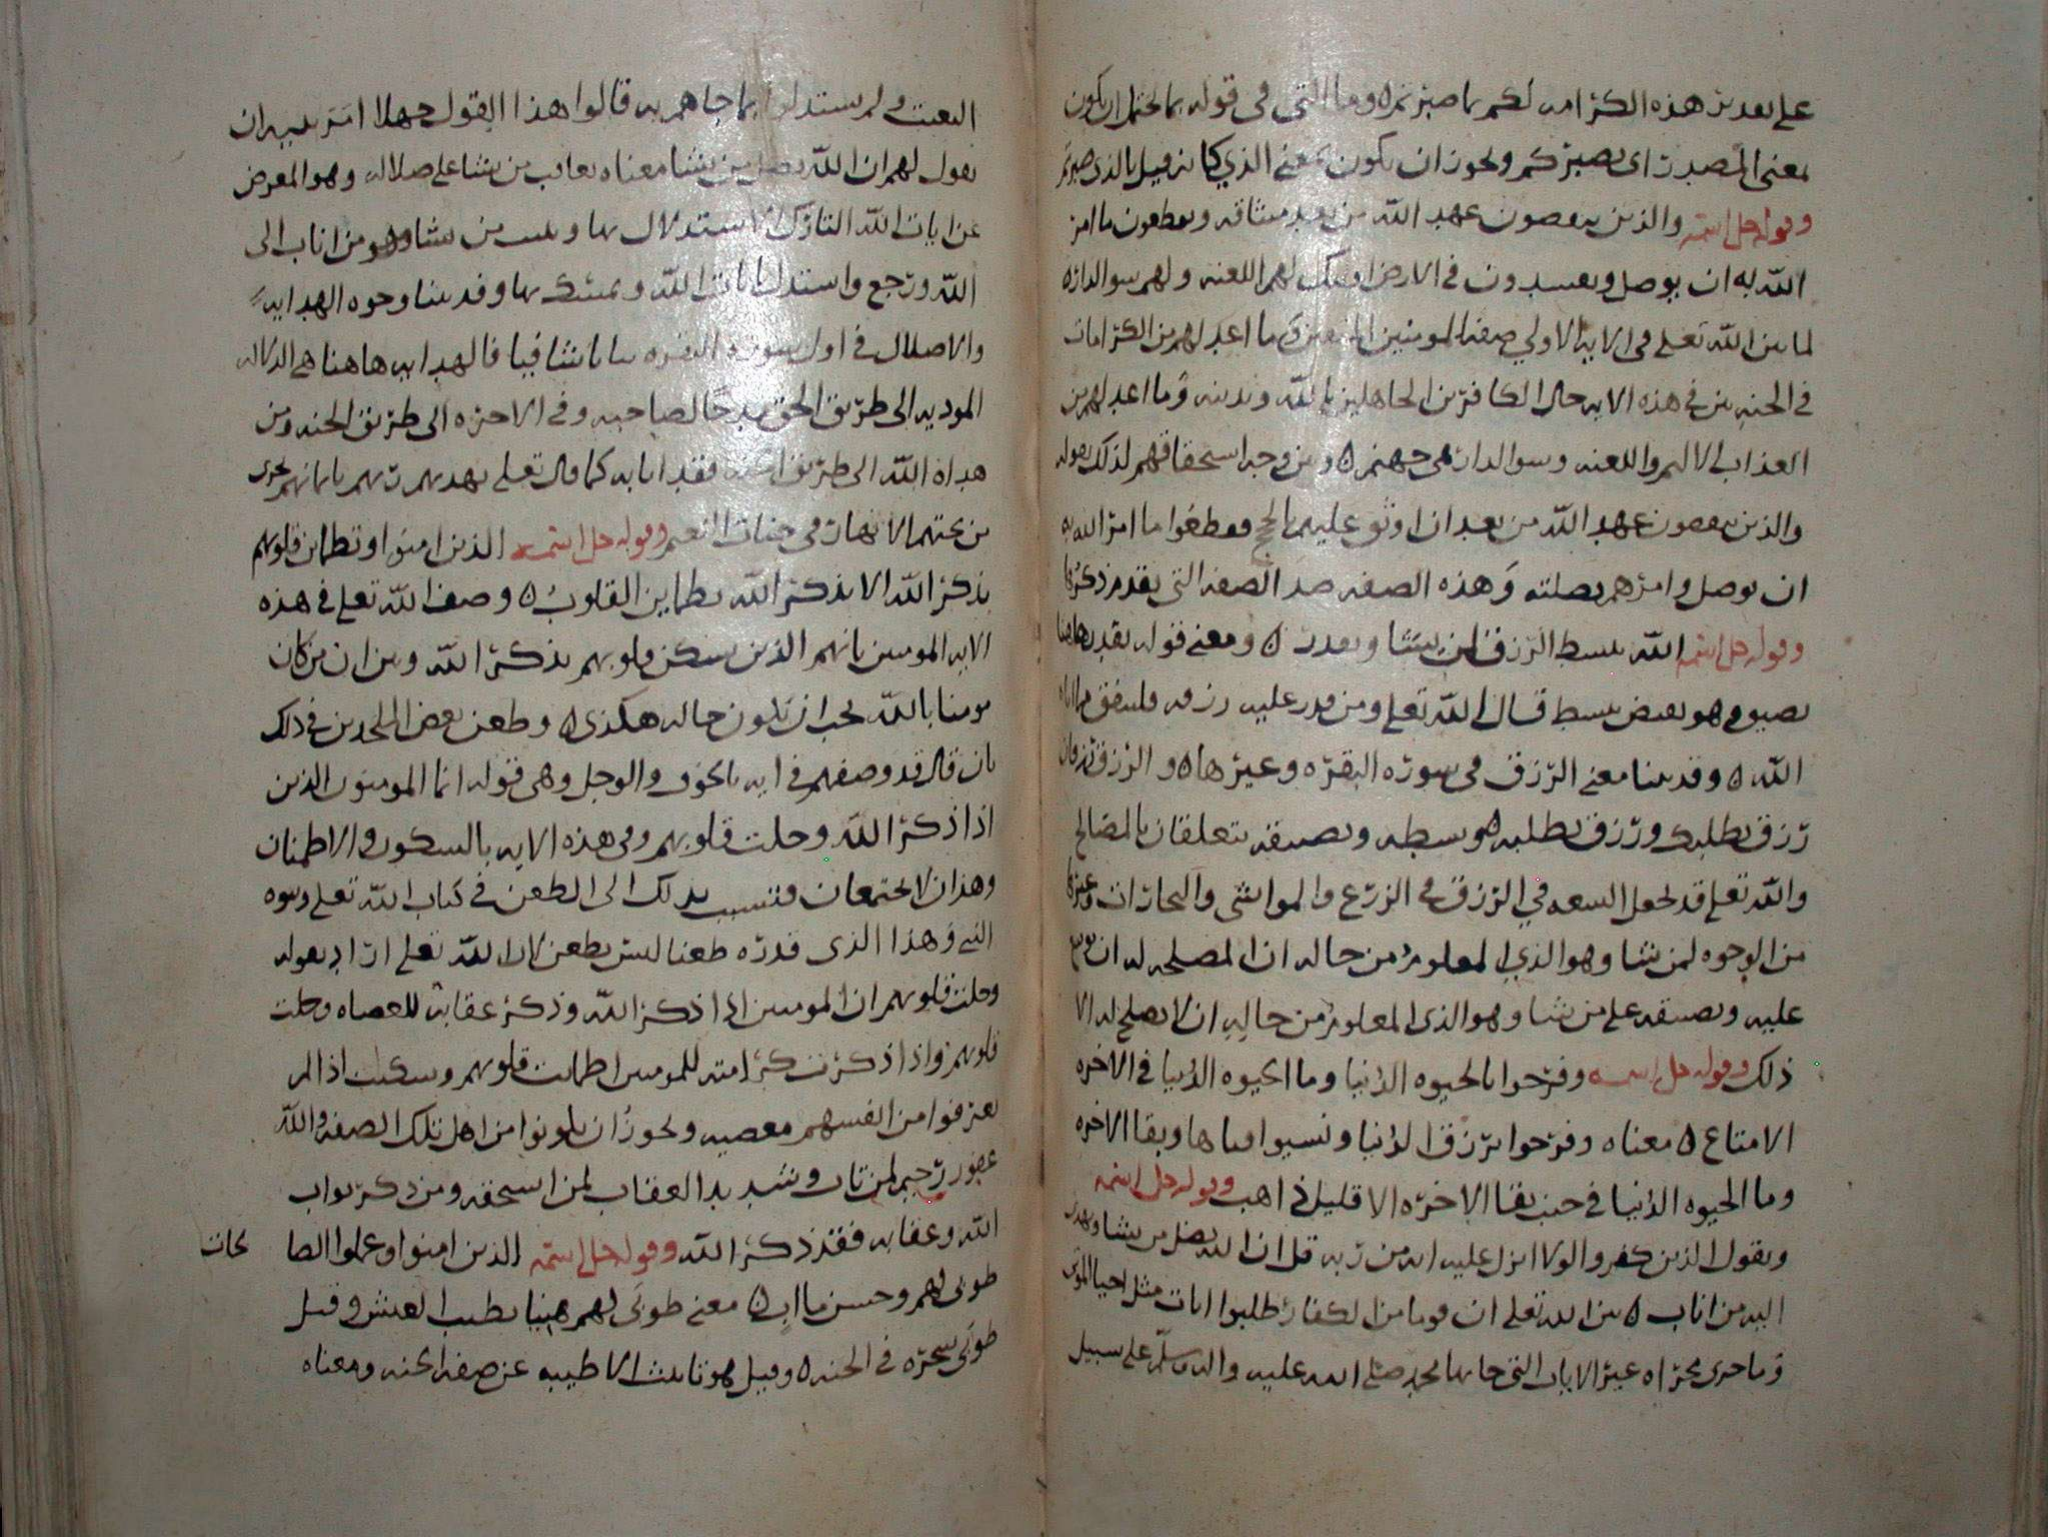 على تقدير هذه الكرامه لكم بما صبرتم ٥ وما التي في قوله بما يحتمل ان يكون
بمعنى المصدر اي بصبركم ويجوز ان يكون بمعنى الذي كانه قيل بالذي صبرتم
وقوله جل اسمه والذين ينقصون عهد الله من بعد ميثاقه ويقطعون ما امر
الله به ان يوصل ويفسدون في الارض اوليك لهم اللعنه ولهم سو الداره
لما بين الله تعلى في الايه الاولي صفه المومنين وما اعد لهم من الكرامات
في الجنه بين في هذه الايه حال الكافرين الجاهلين بالله وبدينه وما اعد لهم من
العذاب الاليم واللعنه وسو الدار هي جهنم ٥ وبين وجه استحقاقهم لذلك بقوله
والذين ينقضون عهد الله من بعد ان اوثق عليهم الحجج وقطعوا ما امر الله به
ان يوصل وامرهم بصلته وهذه الصفه ضد الصفه التي تقدم ذكرها
وقوله جل اسمه الله يبسط الرزق لمن يشا ويقدر ٥ ومعنى قوله يقدر هاهنا
يضيق وهو نقيض يبسط قال الله تعلى ومن قدر عليه رزقه فلينفق مما اتاه
الله ٥ وقد بينا معنى الرزق في سورة البقره وغيرها ٥ والرزق رزقان
رزق يطلبك ورزق تطلبه ٥ وبسطه وتضييقه يتعلقان بالمصالح
والله تعلى قد يجعل السعه في الرزق في الزرع والمواشي والتجارات وغيرها
من الوجوه لمن يشا وهو الذي المعلوم من حاله ان المصلحه له ان يوسع
عليه ويضيقه على من يشا وهو الذي المعلوم من حاله ان لا يصلح له الا
ذلك وقوله جل اسمه وفرحوا بالحيوه الدنيا وما الحيوه الدنيا في الاخره
الا متاع ٥ معناه وفرحوا برزق الدنيا ونسيوا فناها وبقا الاخره
وما الحيوه الدنيا في جنب بقا الاخره الا قليل ذاهب وقوله جل اسمه
ويقول الذين كفروا لولا انزل عليه ايه من ربه قل ان الله يضل من يشا ويهدي
اليه من اناب ٥ بين الله تعلى ان قوما من الكفار طلبوا ايات مثل احيا الموتى
وما جرى مجراه غير الايات التي جا بها محمد صلى الله عليه واله وسلم على سبيل
البعث ولم يستدلوا بما جاهم به قالوا هذا القول جهلا امر نبيه ان
يقول لهم ان الله يضل من يشا معناه يعاقب من يشا على ضلاله وهو المعرض
عن ايات الله التارك للاستدلال بها ويثيب من يشا وهو من اناب الى
الله ورجع واستدل بايات الله وتمسك بها وقد بينا وجوه الهدايه
والاضلال في اول سورة البقره بيانا شافيا فالهدايه هاهنا هي الدلاله
الموديه الى طريق الحق مدحًا لصاحبه وفي الاخره الى طريق الجنه ومن
هداه الله الى طريق الجنه فقد اثابه كما قال تعلى يهديهم ربهم بايمانهم تجري
من تحتهم الانهار في جنات النعيم وقوله جل اسمه الذين امنوا وتطماين قلوبهم
بذكر الله الا بذكر الله تطماين القلوب ٥ وصف الله تعلى في هذه
الايه المومنين بانهم الذين تسكن قلوبهم بذكر الله وبين ان من كان
مومنا بالله يجب ان تكون حاله هكذى ٥ وطعن بعض الملحدين في ذلك
بان قال قد وصفهم في ايه بالخوف والوجل وهي قوله انما المومنون الذين
اذا ذكر الله وجلت قلوبهم وفي هذه الايه بالسكون والاطمنان
وهذان لا يجتمعان فتسبب بذلك الى الطعن في كتاب الله تعلى ونبوه
النبي وهذا الذي قدره طعنا ليس بطعن لان الله تعلى اراد بقوله
وجلت قلوبهم ان المومنين اذا ذكر الله وذكر عقابه للعصاه وجلت
قلوبهم واذا ذكرت كرامته للمومنين اطمانت قلوبهم وسكنت اذا لم
يعرفوا من انفسهم معصيه ويجوز ان يكونوا من اهل تلك الصفه والله
غفور رحيم لمن تاب وشديد العقاب لمن استحقه ومن ذكر ثواب
الله وعقابه فقد ذكر الله وقوله جل اسمه الذين امنوا وعملوا الصا
لحات
طوبى لهم وحسن ماب ٥ معنى طوبى لهم هنيا بطيب العيش وقيل
طوبى شجره في الجنه ٥ وقيل هو تانيث الاطيبه عن صفه الجنه ومعناه